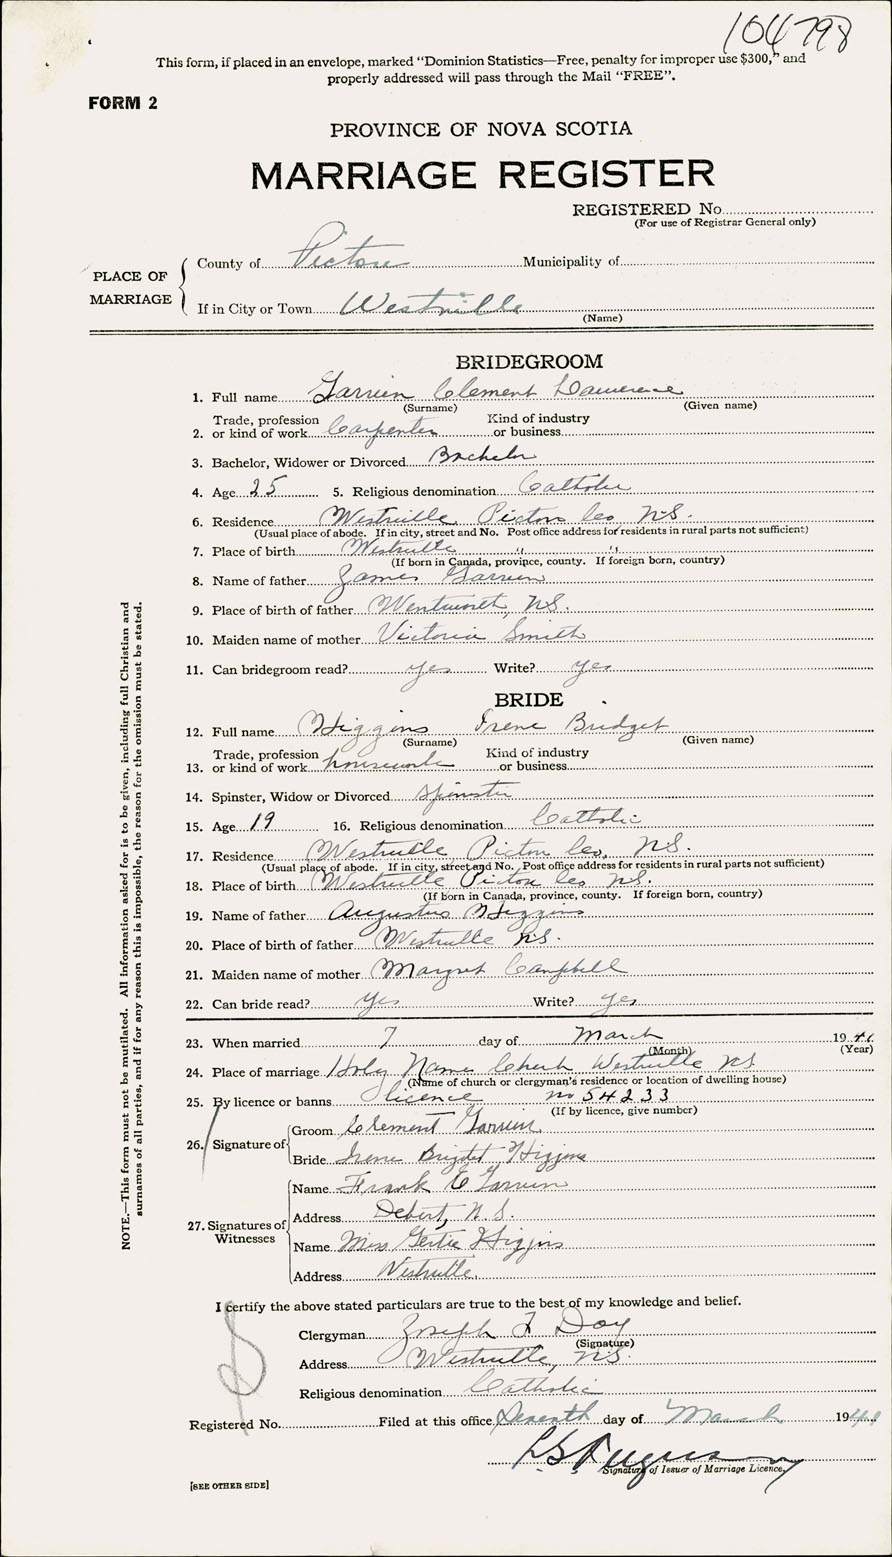 104798
This form, if placed in an envelope, marked "Dominion Statistics—Free, penalty for improper use $300," and
properly addressed will pass through the Mail "FREE".
FORM 2
PROVINCE OF NOVA SCOTIA
MARRIAGE REGISTER
REGISTERED No.
(For use of Registrar General only)
PLACE OF MARRIAGE
County of Pictou Municipality of
If in City or Town Westville
(Name)
BRIDEGROOM
1. Full name Garvin Clement Lawerence
(Surname) (Given name)
Trade, profession Kind of industry
2. or kind of work Carpenter or business
3. Bachelor, Widower or Divorced Bachelor
4. Age 25 5. Religious denomination Catholic
6. Residence Westville Pictou Co N.S.
(Usual place of abode. If in city, street and No. Post office address for residents in rural parts not sufficient)
7. Place of birth Westville " "
(If born in Canada, province, county. If foreign born, country)
8. Name of father James Garvin
9. Place of birth of father Wentworth, N.S.
10. Maiden name of mother Victoria Smith
11. Can bridegroom read? yes Write? yes
BRIDE
12. Full name Higgins Irene Bridget
(Surname) (Given name)
Trade, profession Kind of industry
13. or kind of work housework or business
14. Spinster, Widow or Divorced Spinster
15. Age 19 16. Religious denomination Catholic
17. Residence Westville Pictou Co, N.S.
(Usual place of abode. If in city, street and No. Post office address for residents in rural parts not sufficient)
18. Place of birth Westville Pictou Co N.S.
(If born in Canada, province, county. If foreign born, country)
19. Name of father Augustus Higgins
20. Place of birth of father Westville N.S.
21. Maiden name of mother Margret Campbell
22. Can bride read? yes Write? yes
23. When married 7 day of March 1941
(Month) (Year)
24. Place of marriage Holy Name Church Westville NS
(Name of church or clergyman's residence or location of dwelling house)
25. By licence or banns licence no 54233
(If by licence, give number)
26. Signature of
Groom Clement Garvin
Bride Irene Brigdet Higgins
27. Signatures of Witnesses
Name Frank E Garvin
Address Debert, N.S.
Name Miss Gertie Higgins
Address Westville
I certify the above stated particulars are true to the best of my knowledge and belief.
Clergyman Joseph F Doy
(Signature)
Address Westville, N.S.
Religious denomination Catholic
Registered No. Filed at this office Seventh day of March 1941
Signature of Issuer of Marriage Licence.
[SEE OTHER SIDE]
NOTE.—This form must not be mutilated. All information asked for is to be given, including full Christian and
surnames of all parties, and if for any reason this is impossible, the reason for the omission must be stated.